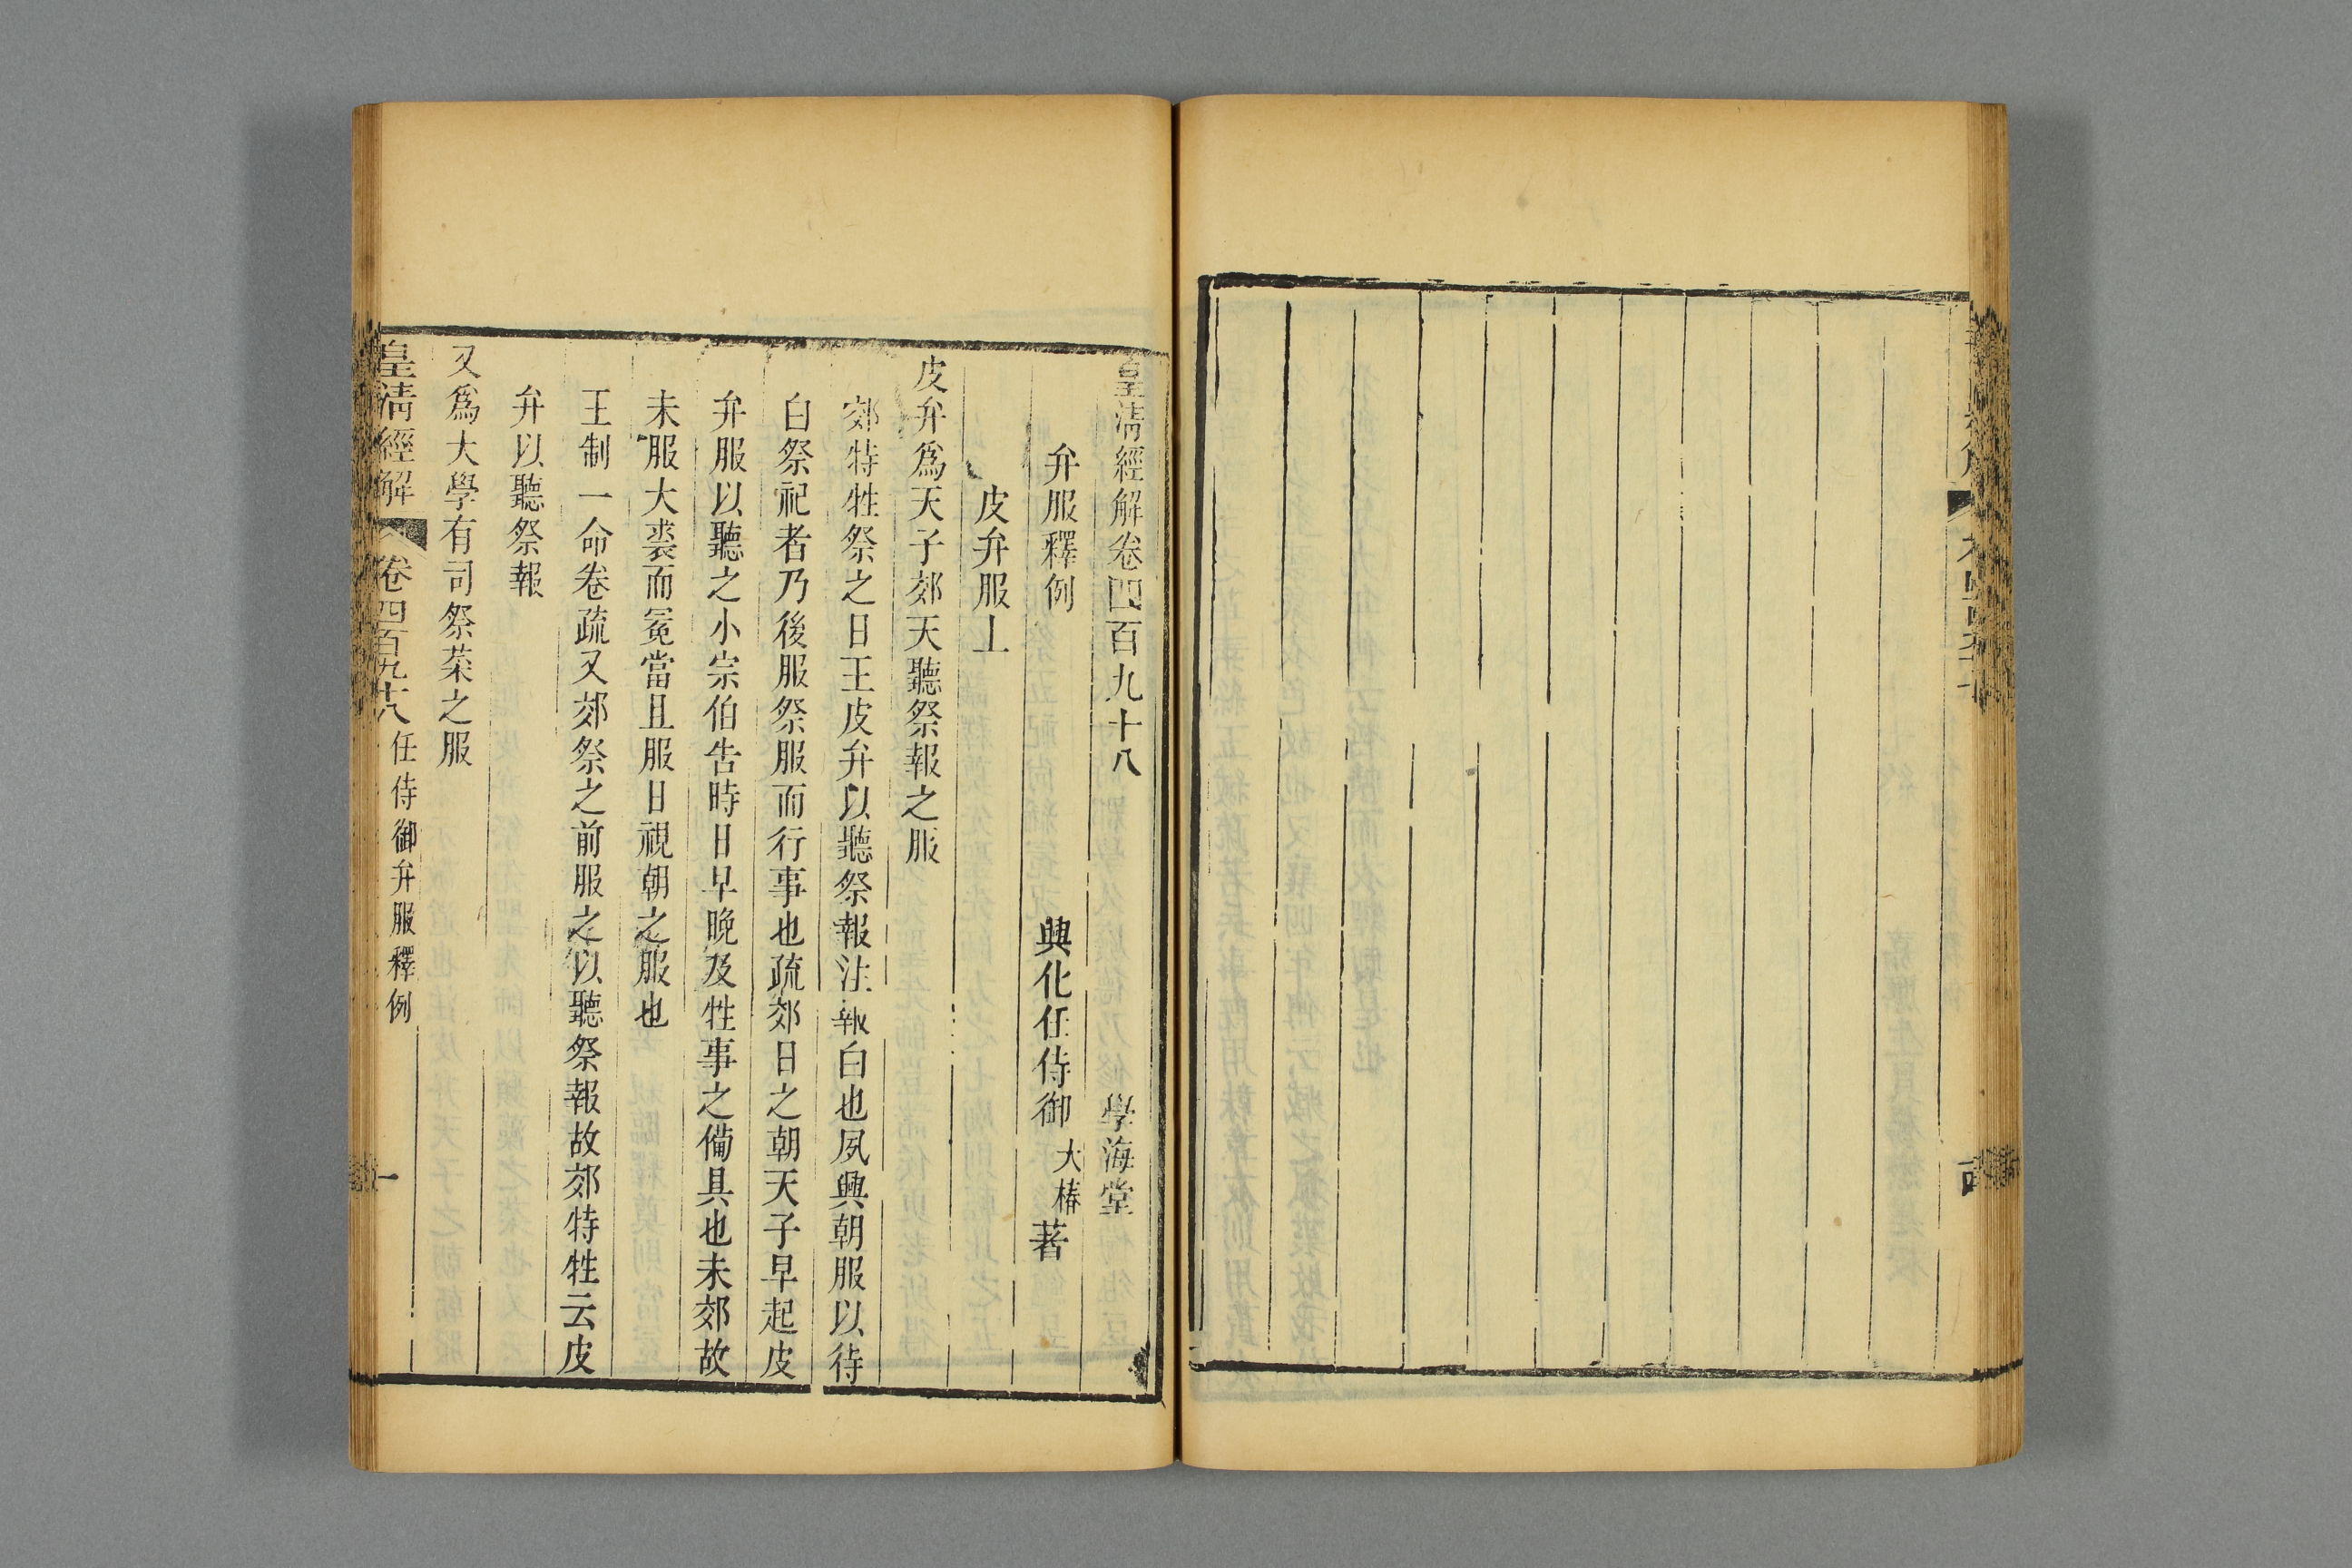 皇清經解卷四百九十八 學海堂
弁服釋例 興化任侍御大椿著
皮弁服上
皮弁爲天子郊天聽祭報之服
郊特牲祭之日王皮弁以聽祭報注報白也夙興朝服以待
白祭祀者乃後服祭服而行事也疏郊日之朝天子早起皮
弁服以聽之小宗伯告時日早晚及牲事之備具也未郊故
未服大裘而冕當且服日視朝之服也
王制一命卷疏又郊祭之前服之以聽祭報故郊特牲云皮
弁以聽祭報
又爲大學有司祭菜之服
皇清經解 卷四百九十八 任侍御弁服釋例 一